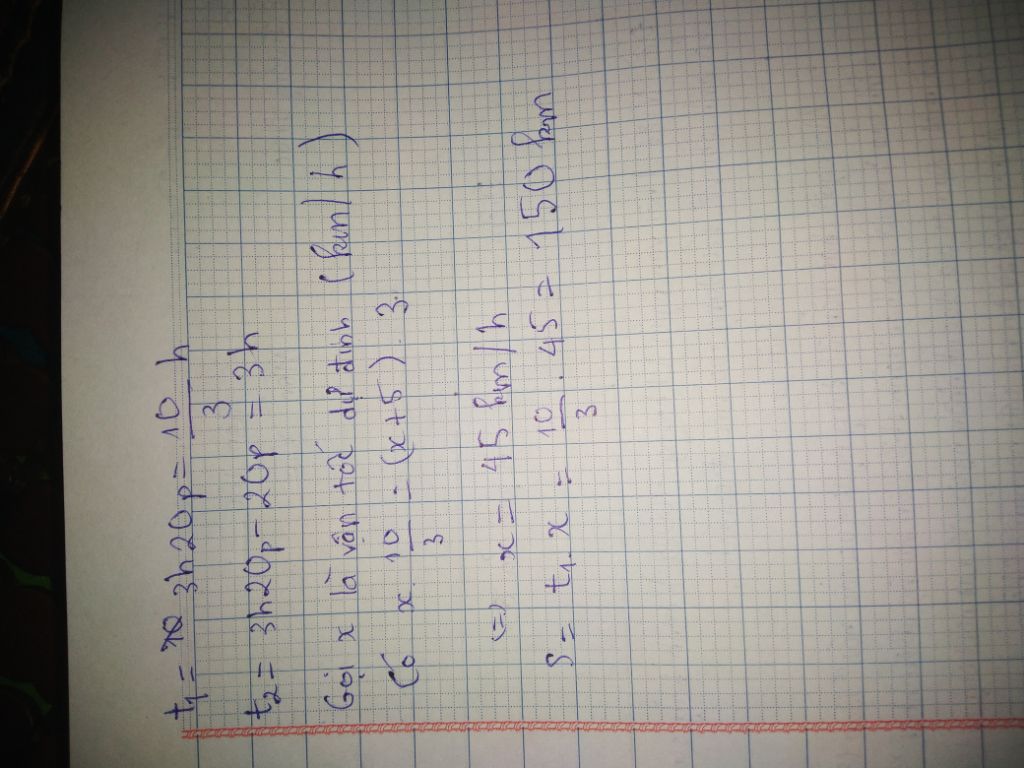 t₁ = 3h20p = 10/3 h
t₂ = 3h20p - 20p = 3h
Gọi x là vận tốc dự định (km/h)
Có x. 10/3 = (x+5). 3
<=> x = 45 km/h
S = t₁. x = 10/3 . 45 = 150 km